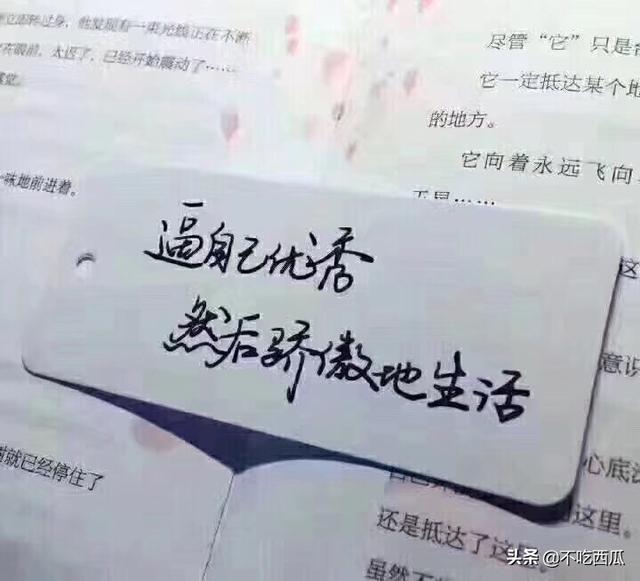 立即转过身，他发现有一束光线正在不断
在眼前，太迟了，已经开始震动了……
感觉。
一味地前进着。
就已经停住了
尽管“它”只是
它一定抵达某个地
的地方。
它向着永远飞向
于是……
逼自己优秀
然后骄傲地生活
这
意识
心底
这里。
还是抵达了这
虽然
头条 @不吃西瓜